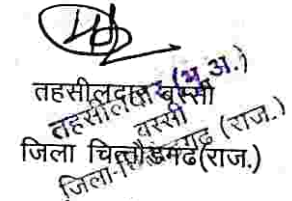 तहसीलदार बस्सी
जिला चित्तौडगढ(राज.)
तहसीलदार (भू.अ.)
बस्सी
जिला-चित्तौड़गढ़ (राज.)